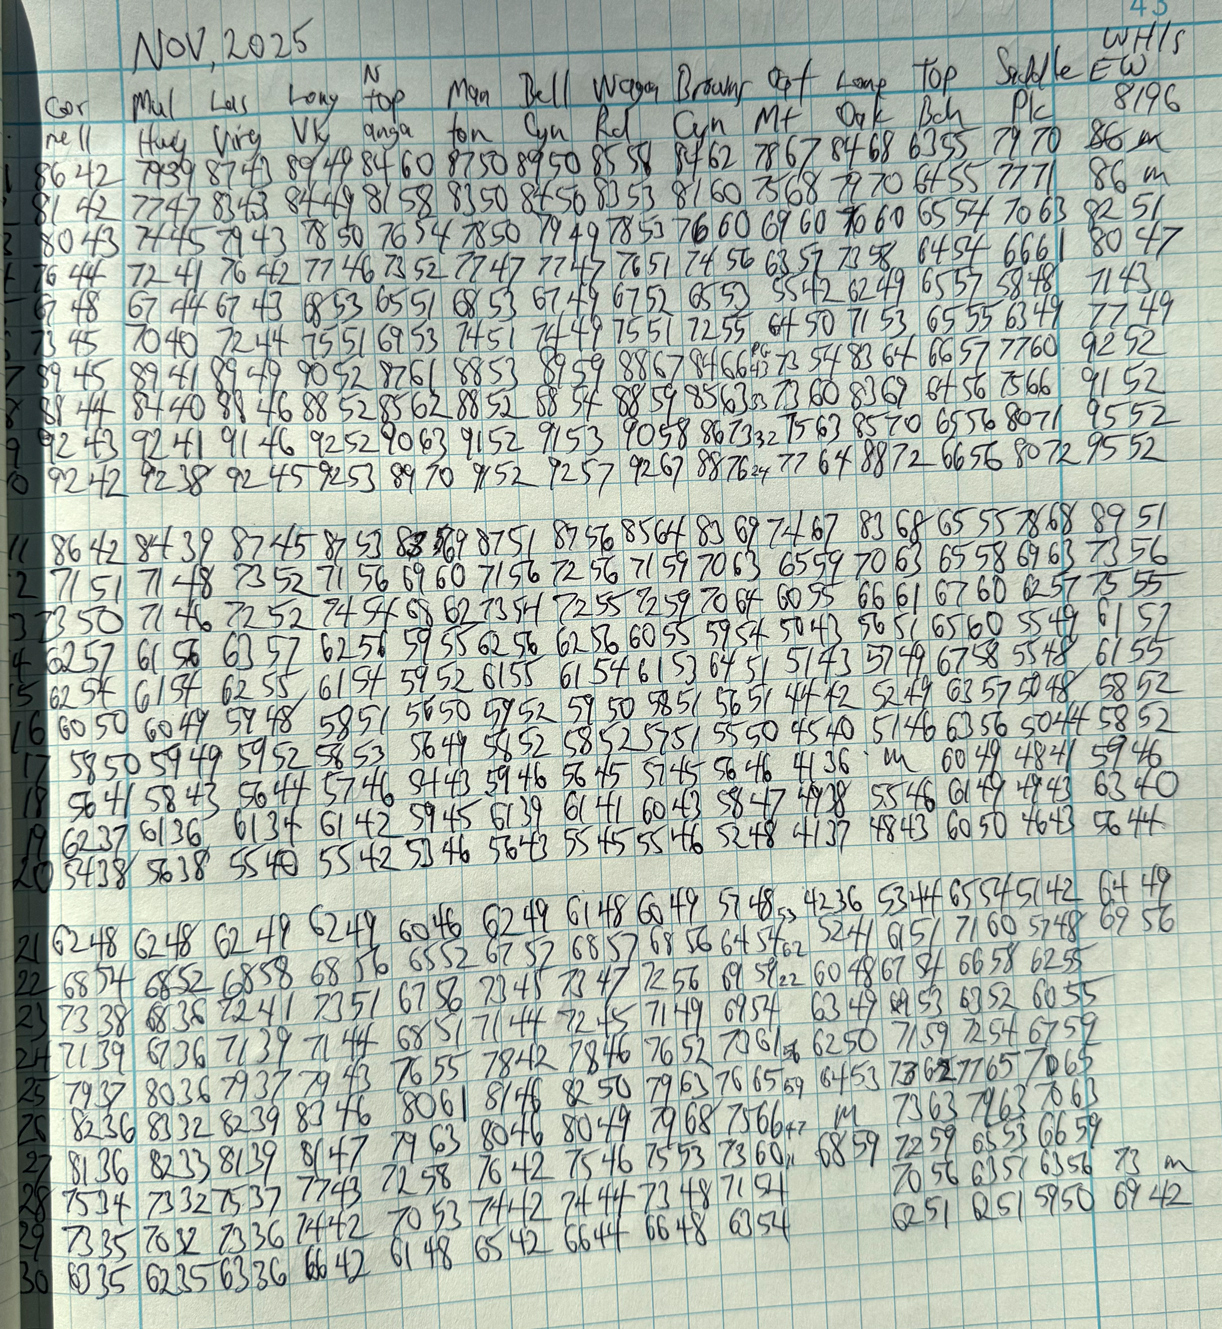 43
NOV, 2025
Cor Mul Las Long N Top Man Bell Wagon Browns Cat Long Top Saddle WH/s EW
nell Hwy Virg VK anga ton Cyn Rd Cyn Mt Oak Bch Pk 8196
1 8642 7939 8743 8949 8460 8750 8950 8558 8462 7867 8468 6355 7970 86 m
2 8142 7747 8343 8449 8158 8350 8450 8353 8160 7568 7970 6455 7771 86 m
3 8043 7445 7943 7850 7654 7850 7949 7853 7660 6960 7660 6554 7063 8251
4 7644 7241 7642 7746 7352 7747 7747 7651 7456 6357 7358 6454 6661 8047
5 6748 6744 6743 6853 6551 6853 6749 6752 6553 5542 6249 6557 5848 7143
6 7345 7040 7244 7551 6953 7451 7449 7551 7255 6450 7153 6555 6349 7749
7 8945 8941 8949 9052 8761 8853 8959 8867 8466 43 7354 8364 6657 7760 9252
8 8844 8440 8846 8852 8562 8852 8854 8859 8563 33 7360 8369 6456 7566 9152
9 9243 9241 9146 9252 9063 9152 9153 9058 8673 32 7563 8570 6556 8071 9552
10 9242 9238 9245 9253 8970 9152 9257 9267 8876 24 7764 8872 6656 8072 9552
11 8642 8439 8745 8753 83 69 8751 8756 8564 8369 7467 8368 6555 7868 8951
12 7151 7148 7352 7156 6960 7156 7256 7159 7063 6559 7063 6558 6963 7356
13 7350 7146 7252 7454 6862 7354 7255 7259 7064 6055 6661 6760 6257 7555
14 6257 6156 6357 6256 5955 6256 6256 6055 5954 5043 5651 6560 5549 6157
15 6254 6154 6255 6154 5952 6155 6154 6153 6451 5143 5749 6758 5548 6155
16 6050 6049 5948 5851 5650 5952 5950 5851 5651 4442 5249 6357 5048 5852
17 5850 5949 5952 5853 5649 5852 5852 5751 5550 4540 5146 6356 5044 5852
18 5641 5843 5644 5746 5443 5946 5645 5745 5646 4136 m 6049 4841 5946
19 6237 6136 6134 6142 5945 6139 6141 6043 5847 4938 5546 6149 4943 6340
20 5438 5638 5540 5542 5346 5643 5545 5546 5248 4137 4843 6050 4643 5644
21 6248 6248 6249 6249 6046 6249 6148 6049 5748 53 4236 5344 6554 5142 6449
22 6854 6852 6858 6856 6552 6757 6857 6856 6454 62 5241 6151 7160 5748 6956
23 7338 6836 7241 7351 6756 7345 7347 7256 6959 22 6048 6754 6658 6255
24 7139 6736 7139 7144 6851 7144 7245 7149 6954 6349 6953 6352 6055
25 7937 8036 7937 7943 7655 7842 7846 7652 7361 56 6250 7159 7254 6759
26 8236 8332 8239 8346 8061 8146 8250 7963 7665 59 6453 7362 7765 7065
27 8136 8233 8139 8147 7963 8046 8049 7968 7566 47 m 7363 7963 7063
28 7534 7332 7537 7743 7258 7642 7546 7553 7360 11 6859 7259 6553 6659
29 7335 7032 7336 7442 7053 7442 7444 7348 7154 7056 6357 6356 73 m
30 6335 6235 6336 6642 6148 6542 6644 6648 6354 6251 6251 5950 6942